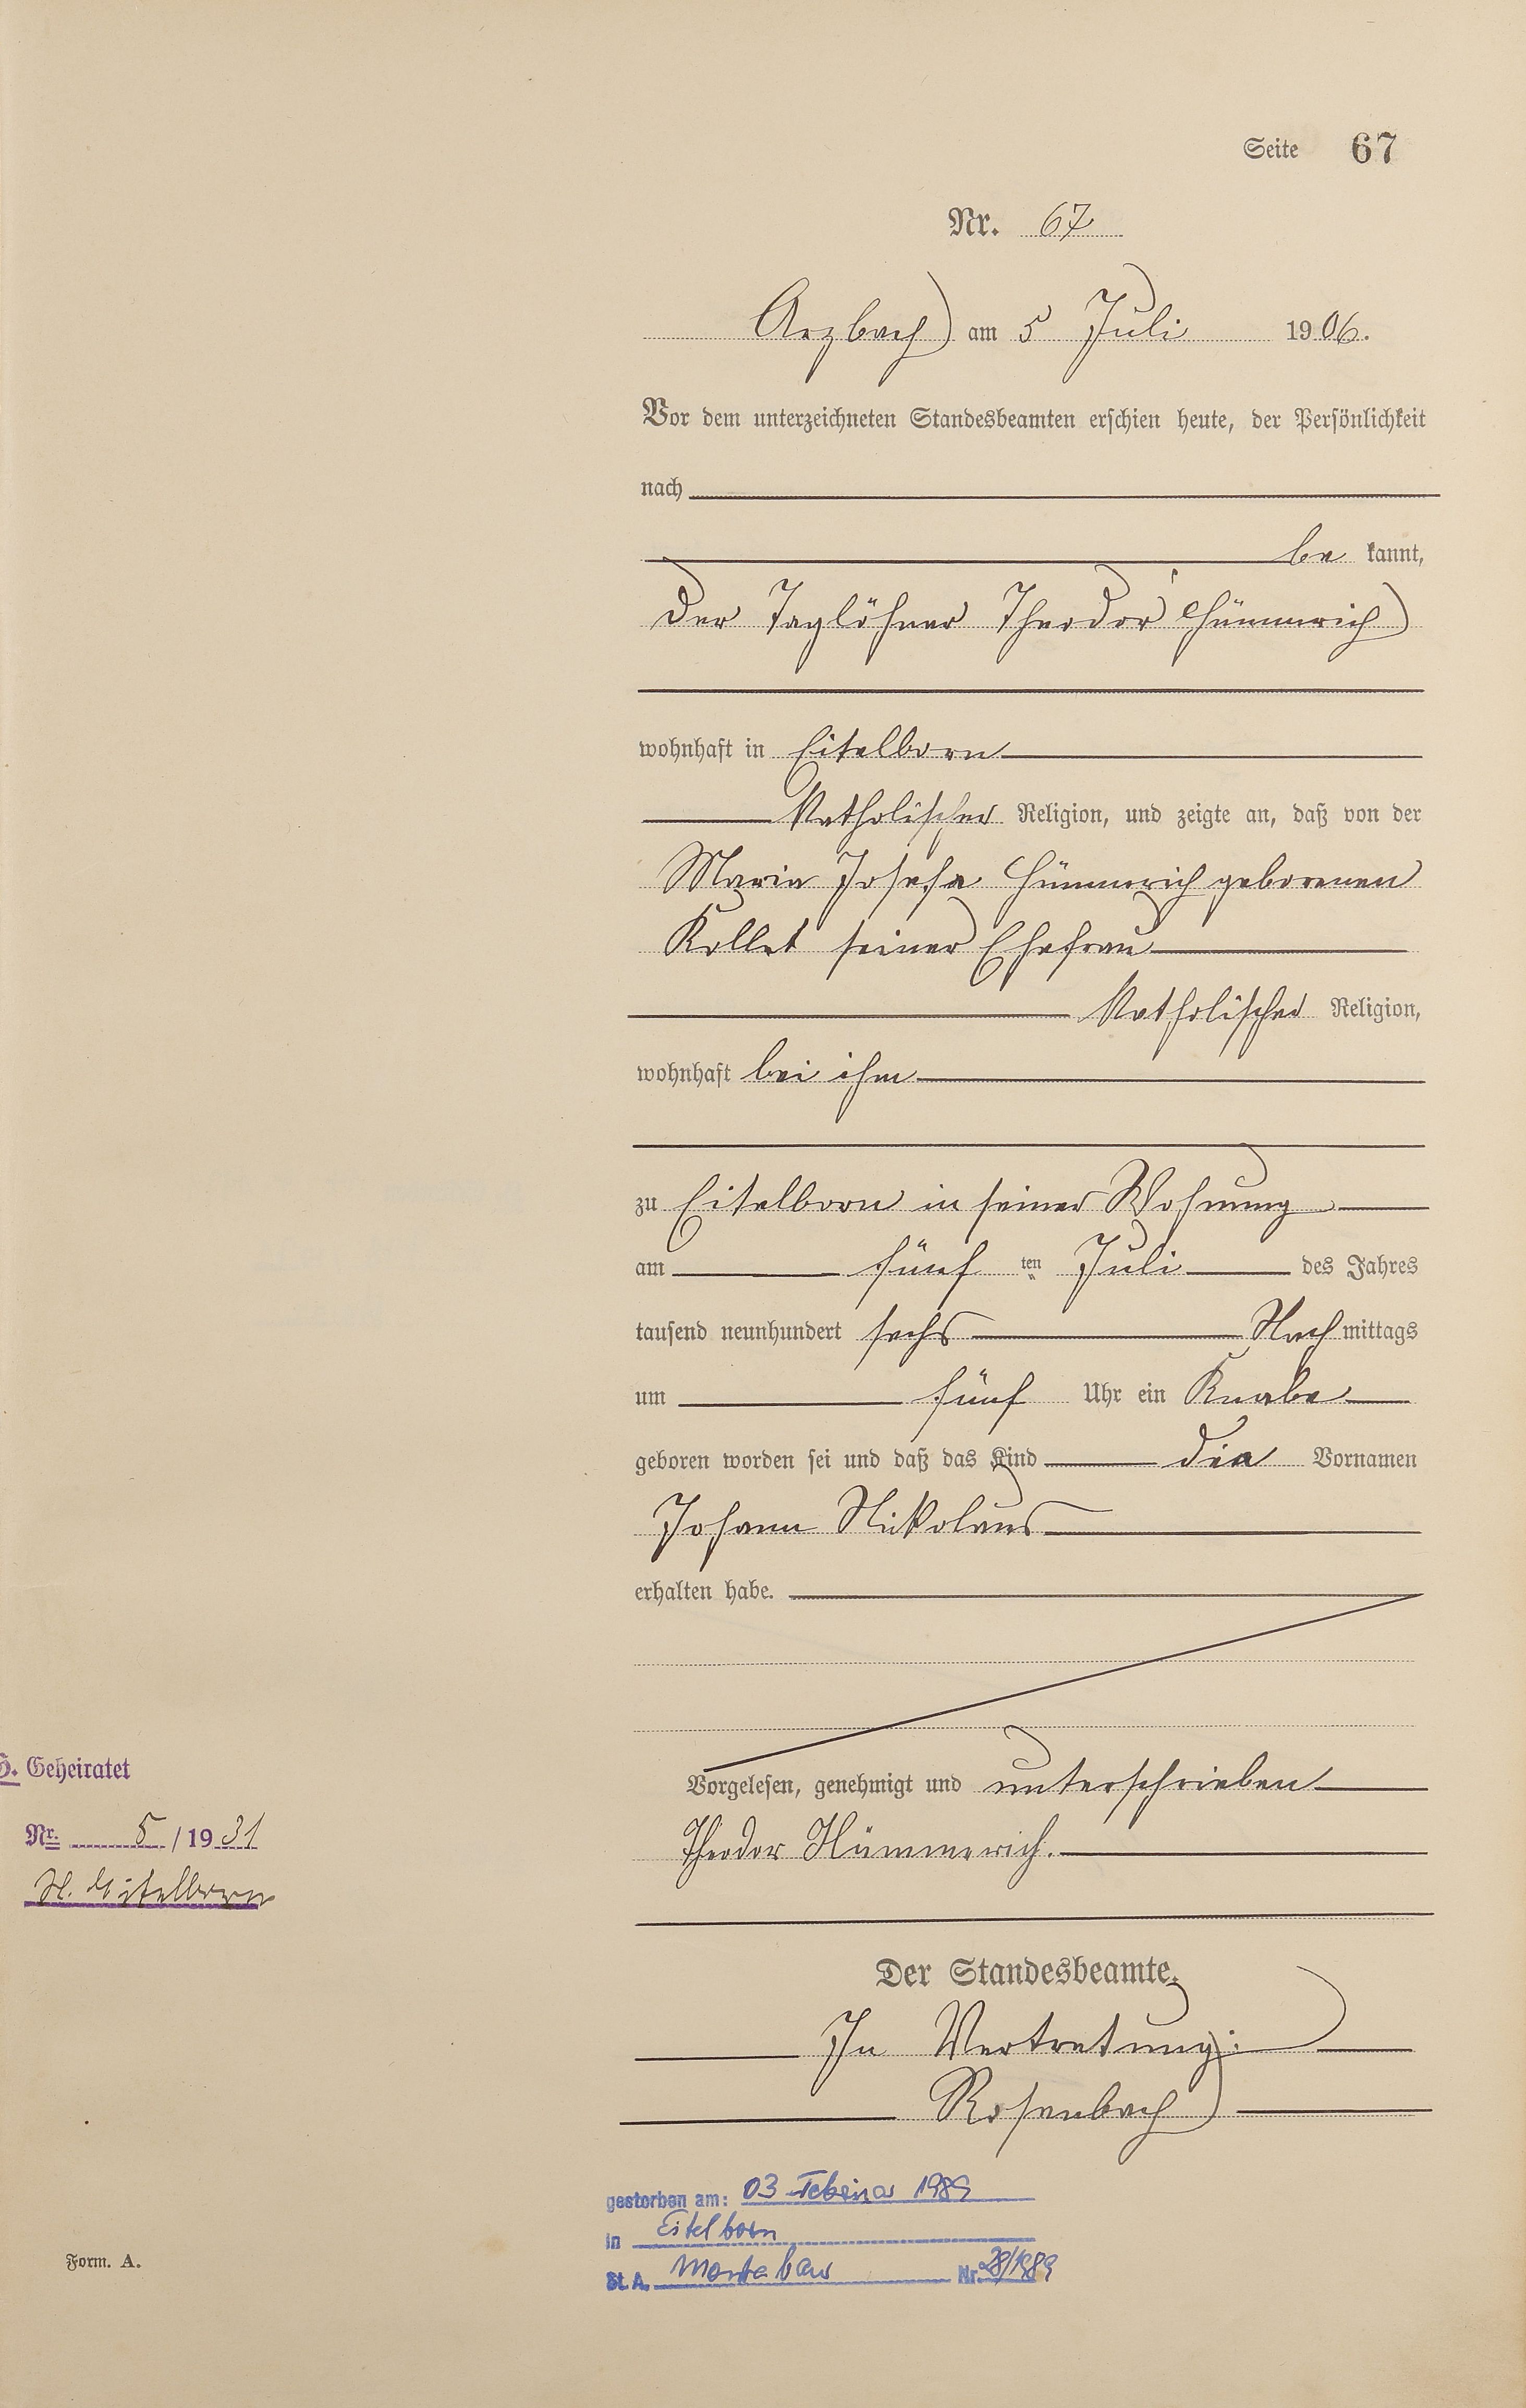 Seite 67
Nr. 67
Arzbach am 5 Juli 1906.
Vor dem unterzeichneten Standesbeamten erschien heute, der Persönlichkeit
nach
be kannt,
der Taglöhner Theodor Hümmerich
wohnhaft in Eitelborn
katholischer Religion, und zeigte an, daß von der
Maria Josefa Hümmerich geborenen
Kollet seiner Ehefrau
katholischer Religion,
wohnhaft bei ihm
zu Eitelborn in seiner Wohnung
am fünf ten Juli des Jahres
tausend neunhundert sechs Nachmittags
um fünf Uhr ein Knabe
geboren worden sei und daß das Kind die Vornamen
Johann Nikolaus
erhalten habe.
Vorgelesen, genehmigt und unterschrieben
Theodor Hümmerich.
Geheiratet
Nr. 5 / 1931
Eitelborn
Der Standesbeamte.
In Vertretung:
Rosenbach
gestorben am: 03 Februar 1989
in Eitelborn
St.A. Montabaur Nr. 28/1989
Form. A.